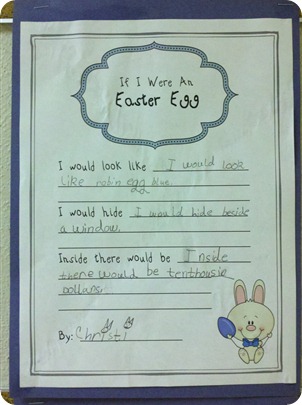 If I Were An
Easter Egg
I would look like I would look
like robin egg blue.
I would hide I would hide beside
a window.
Inside there would be Inside
there would be tenthousin
Dollars.
By: Christi